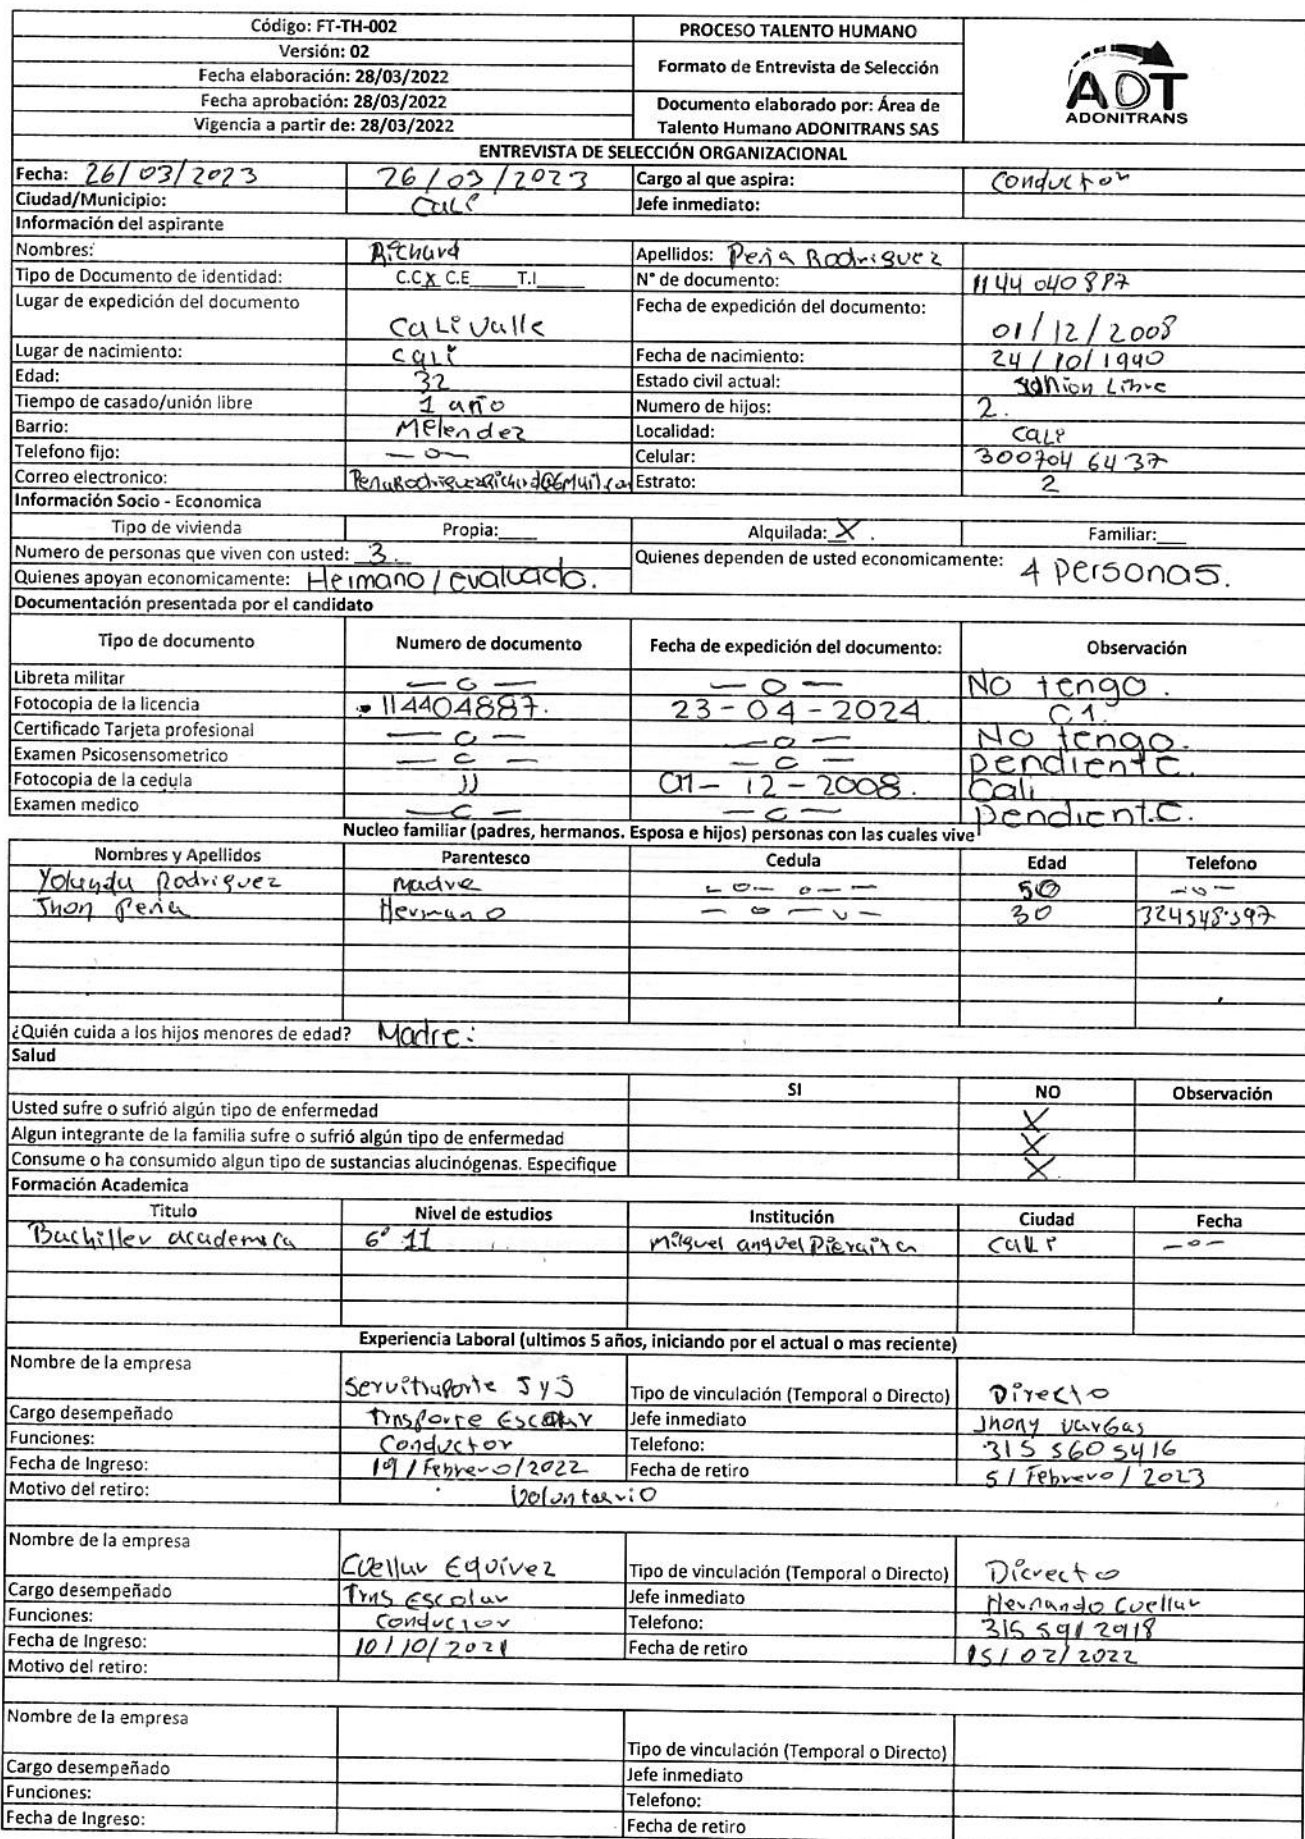 Código: FT-TH-002
Versión: 02
Fecha elaboración: 28/03/2022
Fecha aprobación: 28/03/2022
Vigencia a partir de: 28/03/2022
PROCESO TALENTO HUMANO
Formato de Entrevista de Selección
Documento elaborado por: Área de
Talento Humano ADONITRANS SAS
ADT
ADONITRANS
ENTREVISTA DE SELECCIÓN ORGANIZACIONAL
Fecha: 26/03/2023 26/03/2023 Cargo al que aspira: Conductor
Ciudad/Municipio: Cali Jefe inmediato:
Información del aspirante
Nombres: Richard Apellidos: Peña Rodriguez
Tipo de Documento de identidad: C.C X C.E____ T.I____ N° de documento: 1144 040887
Lugar de expedición del documento Cali Valle Fecha de expedición del documento: 01/12/2008
Lugar de nacimiento: Cali Fecha de nacimiento: 24/10/1990
Edad: 32 Estado civil actual: Union Libre
Tiempo de casado/unión libre 1 año Numero de hijos: 2.
Barrio: Melendez Localidad: Cali
Telefono fijo: —o— Celular: 300704 6437
Correo electronico: PenaRodriguezRichard@GMail.com Estrato: 2
Información Socio - Economica
Tipo de vivienda Propia:____ Alquilada: X . Familiar:___
Numero de personas que viven con usted: 3. Quienes dependen de usted economicamente: 4 personas.
Quienes apoyan economicamente: Hermano / evaluado.
Documentación presentada por el candidato
Tipo de documento Numero de documento Fecha de expedición del documento: Observación
Libreta militar —o— —o— No tengo.
Fotocopia de la licencia 114404887. 23-04-2024 C1.
Certificado Tarjeta profesional —o— —o— No tengo.
Examen Psicosensometrico —o— —o— pendiente.
Fotocopia de la cedula )) 01-12-2008. Cali
Examen medico —o— —o— pendiente.
Nucleo familiar (padres, hermanos. Esposa e hijos) personas con las cuales vive
Nombres y Apellidos Parentesco Cedula Edad Telefono
Yolanda Rodriguez madre —o— o—— 50 —o—
Jhon Peña Hermano —o—o— 30 324548397
¿Quién cuida a los hijos menores de edad? Madre.
Salud
SI NO Observación
Usted sufre o sufrió algún tipo de enfermedad X
Algun integrante de la familia sufre o sufrió algún tipo de enfermedad X
Consume o ha consumido algun tipo de sustancias alucinógenas. Especifique X
Formación Academica
Titulo Nivel de estudios Institución Ciudad Fecha
Bachiller academica 6° 11 Miguel anguel Cali —o—
Experiencia Laboral (ultimos 5 años, iniciando por el actual o mas reciente)
Nombre de la empresa Servitraporte JyJ Tipo de vinculación (Temporal o Directo) Directo
Cargo desempeñado Trnsporte Escolar Jefe inmediato Jhony Vargas
Funciones: Conductor Telefono: 315 5605416
Fecha de Ingreso: 19/Febrero/2022 Fecha de retiro 5/Febrero/2023
Motivo del retiro: Volontario
Nombre de la empresa Cuellar Equivez Tipo de vinculación (Temporal o Directo) Dicrecto
Cargo desempeñado Trns Escolar Jefe inmediato Hernando Cuellar
Funciones: Conductor Telefono: 315 591 2918
Fecha de Ingreso: 10/10/2021 Fecha de retiro 15/02/2022
Motivo del retiro:
Nombre de la empresa Tipo de vinculación (Temporal o Directo)
Cargo desempeñado Jefe inmediato
Funciones: Telefono:
Fecha de Ingreso: Fecha de retiro